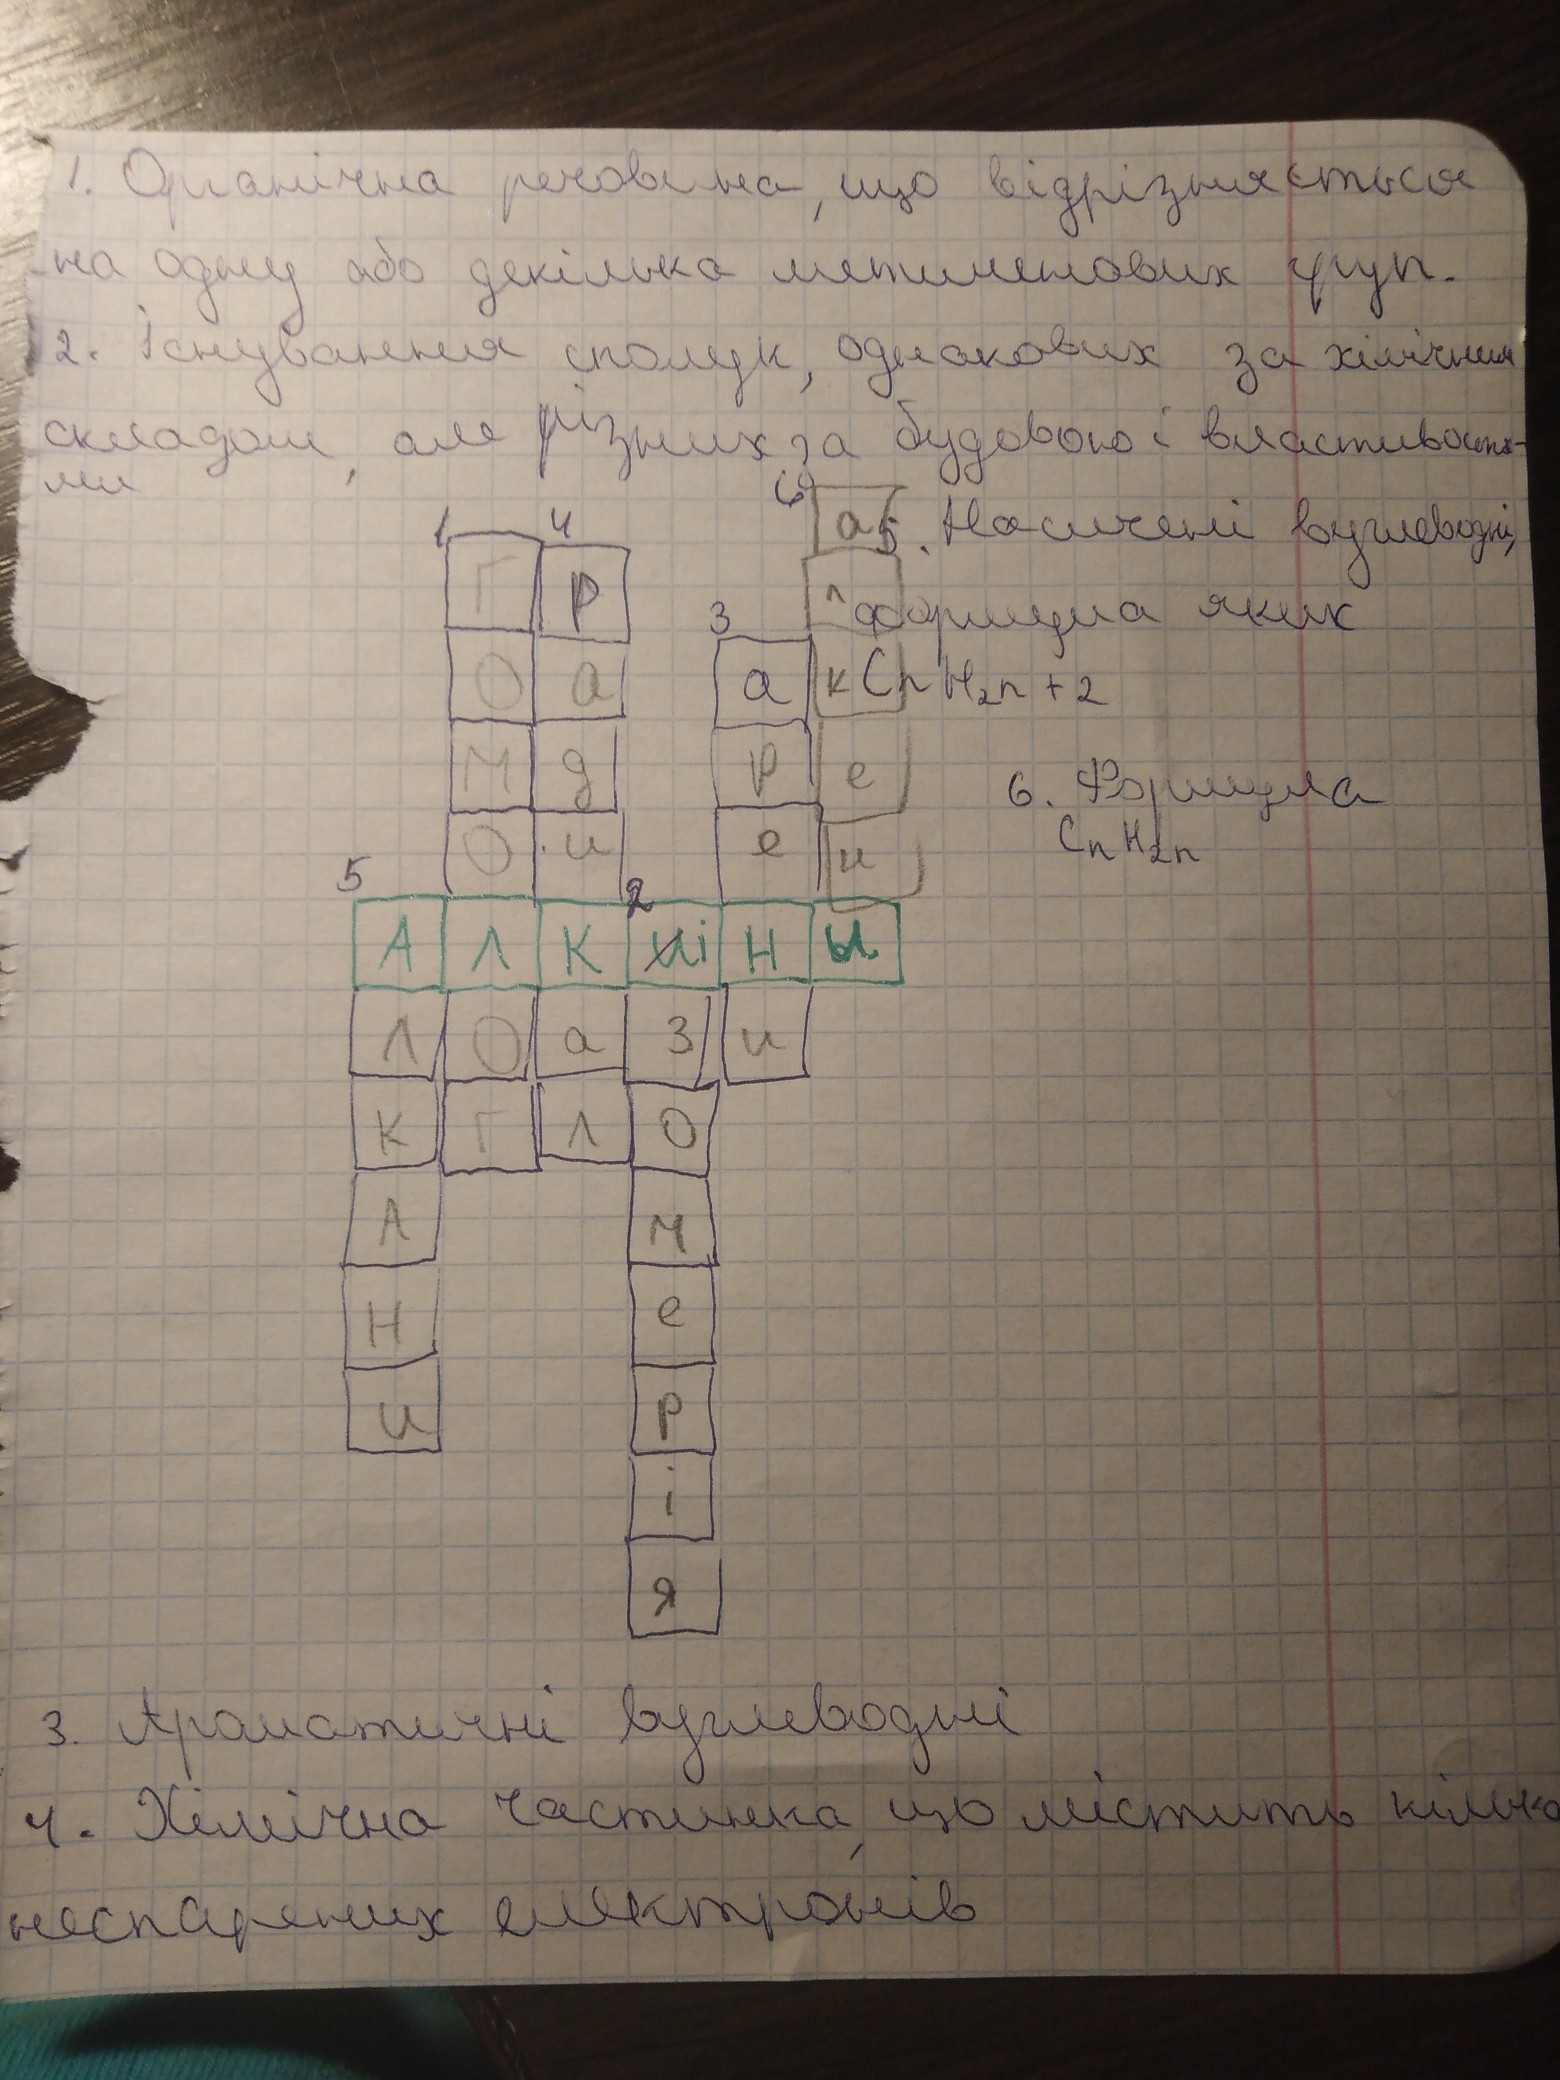 1. Органічна речовина, що відрізняється
на одну або декілька метиленових груп.
2. Існування сполук, однакових за хімічним
складом, але різних за будовою і властивостя-
ми
6
1 4 а 5. Насичені вуглеводні,
Г Р
3 л формула яких
О а а к CnH2n+2
М д р е 6. Формула
О и е и CnH2n
5 2
А Л К і Н и
Л О а З и
К Г Л О
А м
Н е
и р
і
я
3. Ароматичні вуглеводні
4. Хімічна частинка, що містить кілька
неспарених електронів